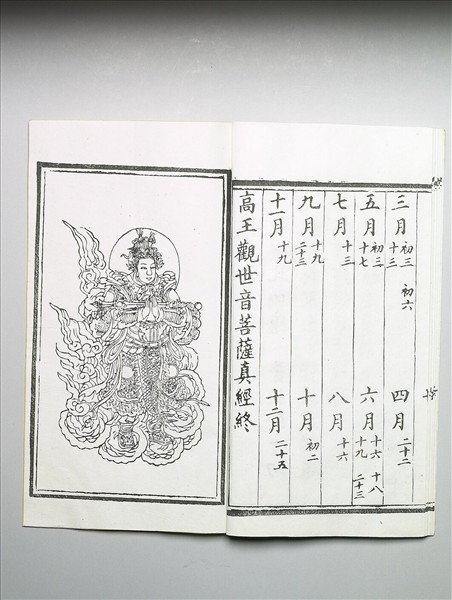 三月 初三 十三 初六 四月 二十二
五月 初三 十七 六月 十六 十九 十八 二十三
七月 十三 八月 十六
九月 十九 二十三 十月 初二
十一月 十九 十二月 二十五
高王觀世音菩薩真經終